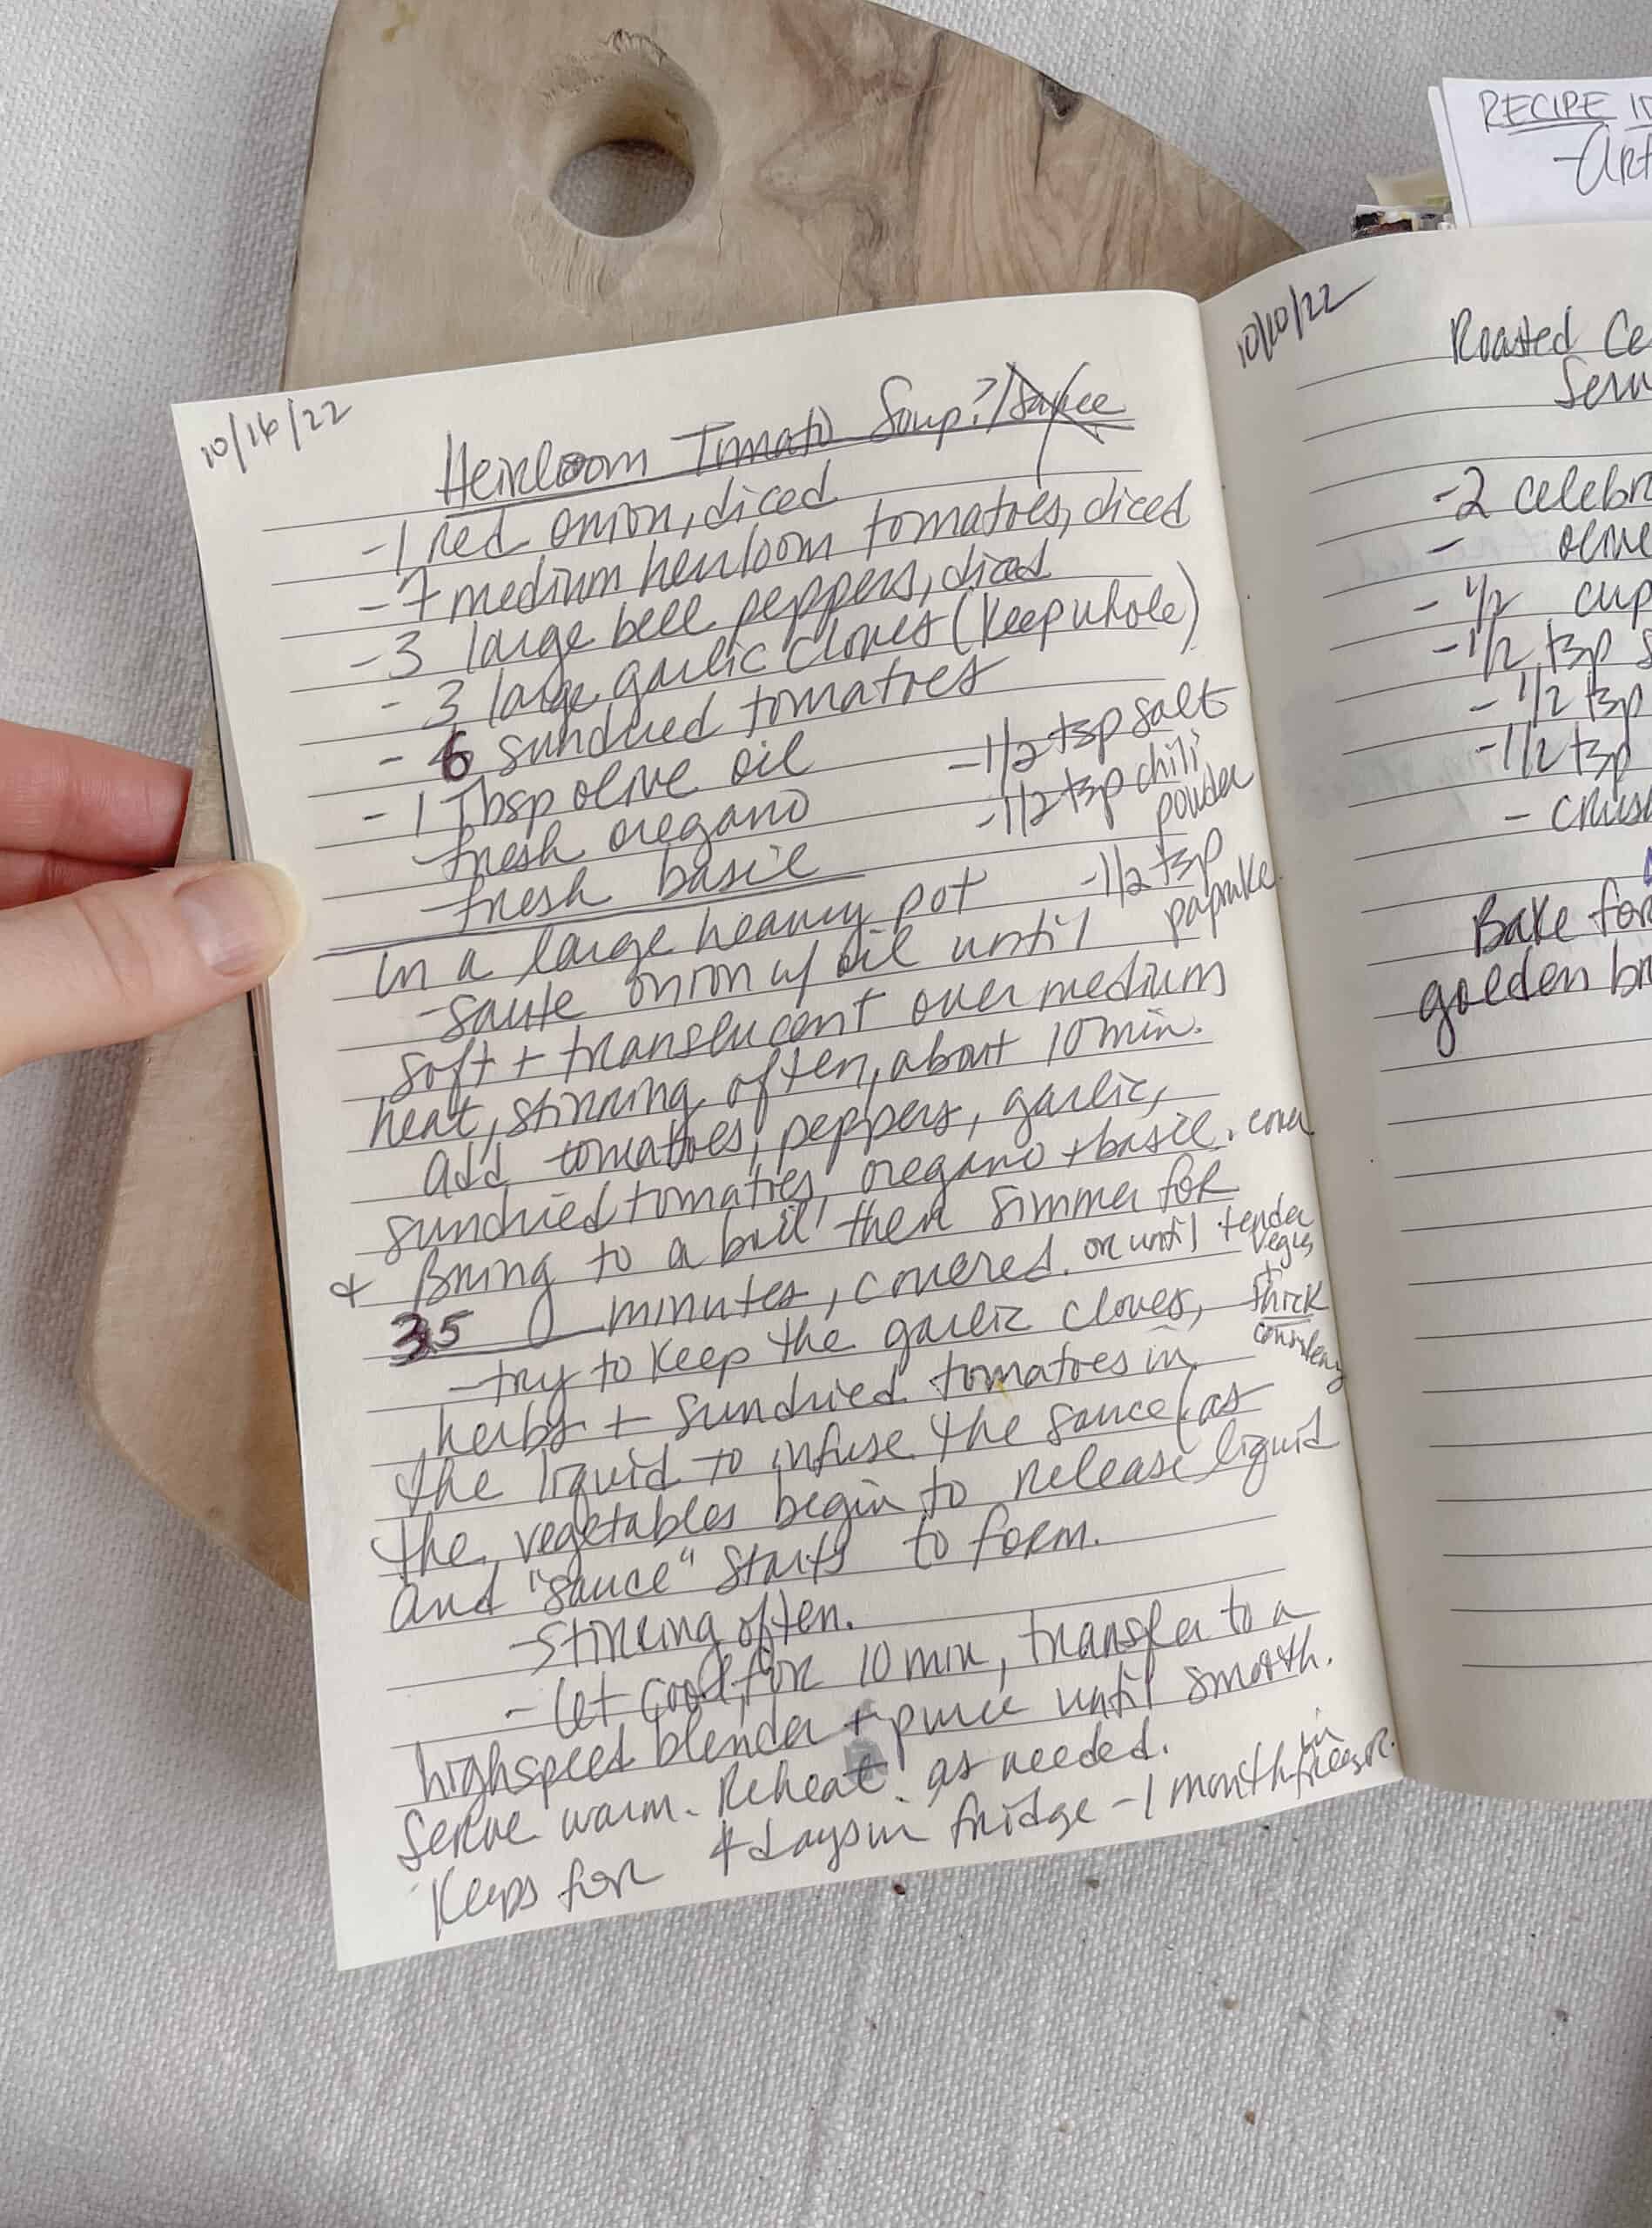 10/16/22
Heirloom Tomato Soup?/Sauce
-1 red onion, diced
-7 medium heirloom tomatoes, diced
-3 large bell peppers, diced
-3 large garlic cloves (keep whole)
-6 sundried tomatoes
-1 Tbsp olive oil
-fresh oregano
-fresh basil
-1/2 tsp salt
-1/2 tsp chili
powder
-1/2 tsp
paprika
In a large heavy pot
-saute onion w/ oil until
soft + translucent over medium
heat, stirring often, about 10 min.
add tomatoes, peppers, garlic,
sundried tomatoes, oregano + basil. cover
+ Bring to a boil then simmer for
35 minutes, covered. or until tender
vegies
+
thick
consistency
-try to keep the garlic cloves,
herbs + sundried tomatoes in
the liquid to infuse the sauce (as
the vegetables begin to release liquid
and "sauce" starts to form.
-stirring often.
-let cool for 10 min, transfer to a
highspeed blender + puree until smooth.
Serve warm. Reheat as needed.
Keeps for 4 days in fridge - 1 month in freezer.
RECIPE
-Art
10/10/22
Roasted
-2
-
-1/2 cup
-1/2 tsp
-1/2 tsp
-1/2 tsp
-
Bake for
golden